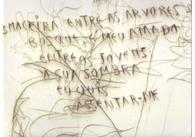 MACIEIRA ENTRE AS ARVORES
BOSQUE, O MEU AMADO
ENTRE OS JOVENS.
A SUA SOMBRA
EU QUIS
ASSENTAR-ME